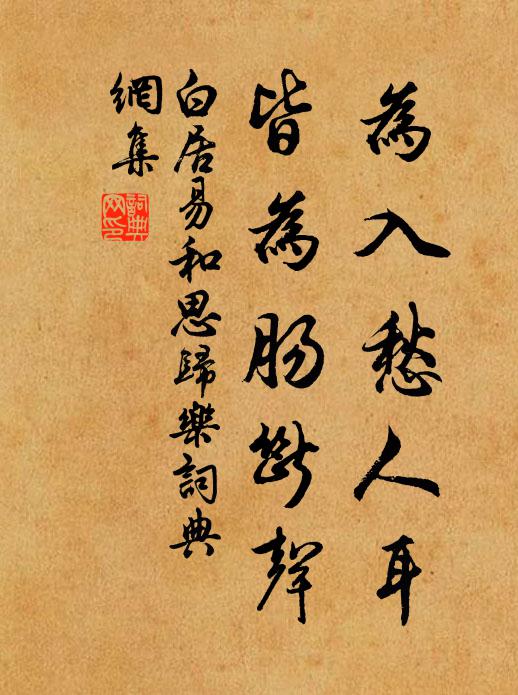 為入愁人耳
皆為腸斷聲
白居易和思歸樂詞典
網集
詞典
网印